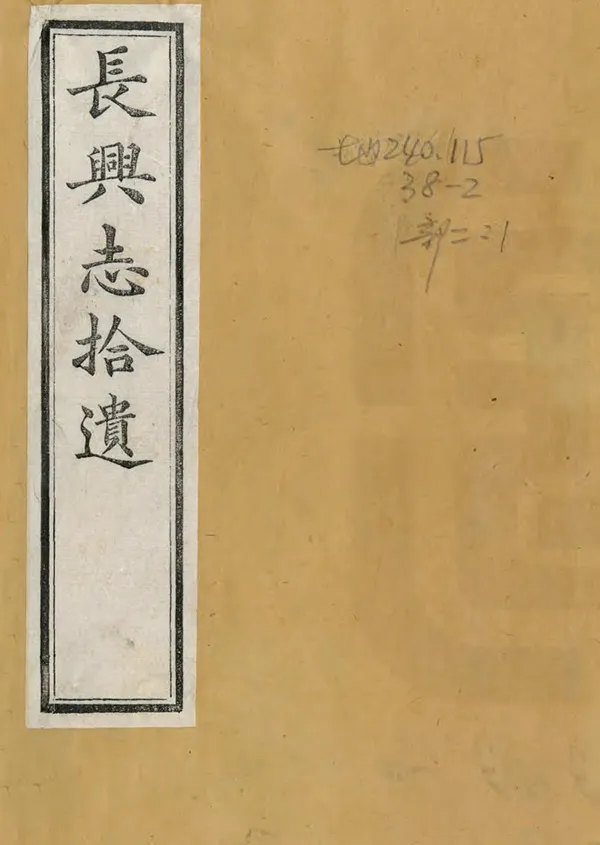 長興志拾遺
240.115
38-2